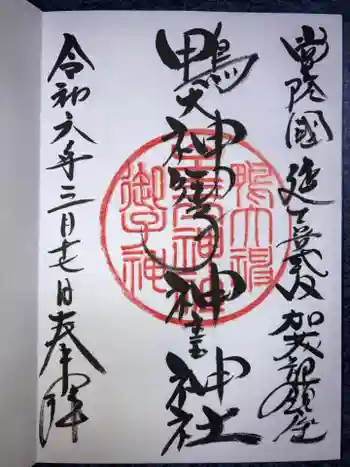 常陸國 延喜式内 加茂部鎮座
鴨大神御子神主玉神社
令和六年三月十七日奉拝
鴨大神
御子神